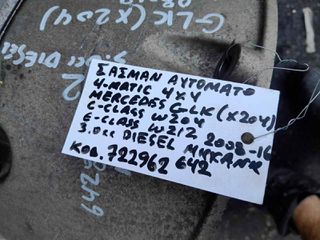 GLK(X204)
3.0cc DIESEL
ΣΑΣΜΑΝ ΑΥΤΟΜΑΤΟ
4-MATIC 4X4
MERCEDES GLK (X204)
C-CLASS W204
E-CLASS W212 2008-16
3.0cc DIESEL ΜΗΧΑΝΗ
ΚΩΔ. 722962 642
642